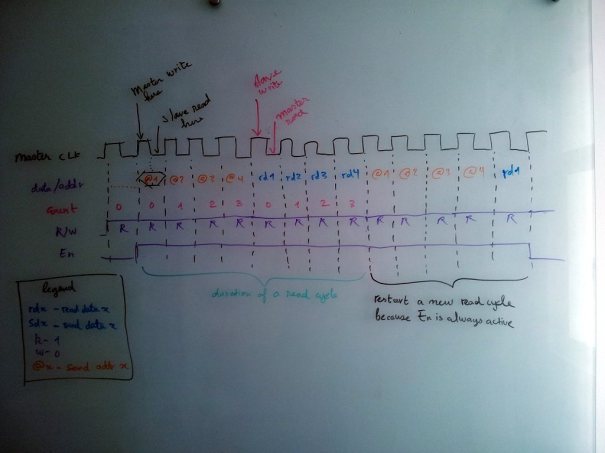 Master write
here
slave read
here
slave
write
master
read
master CLK
data/addr @1 @2 @3 @4 rd1 rd2 rd3 rd4 @1 @2 @3 @4 rd1
count 0 0 1 2 3 0 1 2 3
R/W R R R R R R R R R R R R R R
En
duration of a read cycle
restart a new read cycle
because En is always active
legend
rdx - read data x
sdx - send data x
R - 1
W - 0
@x - send addr x